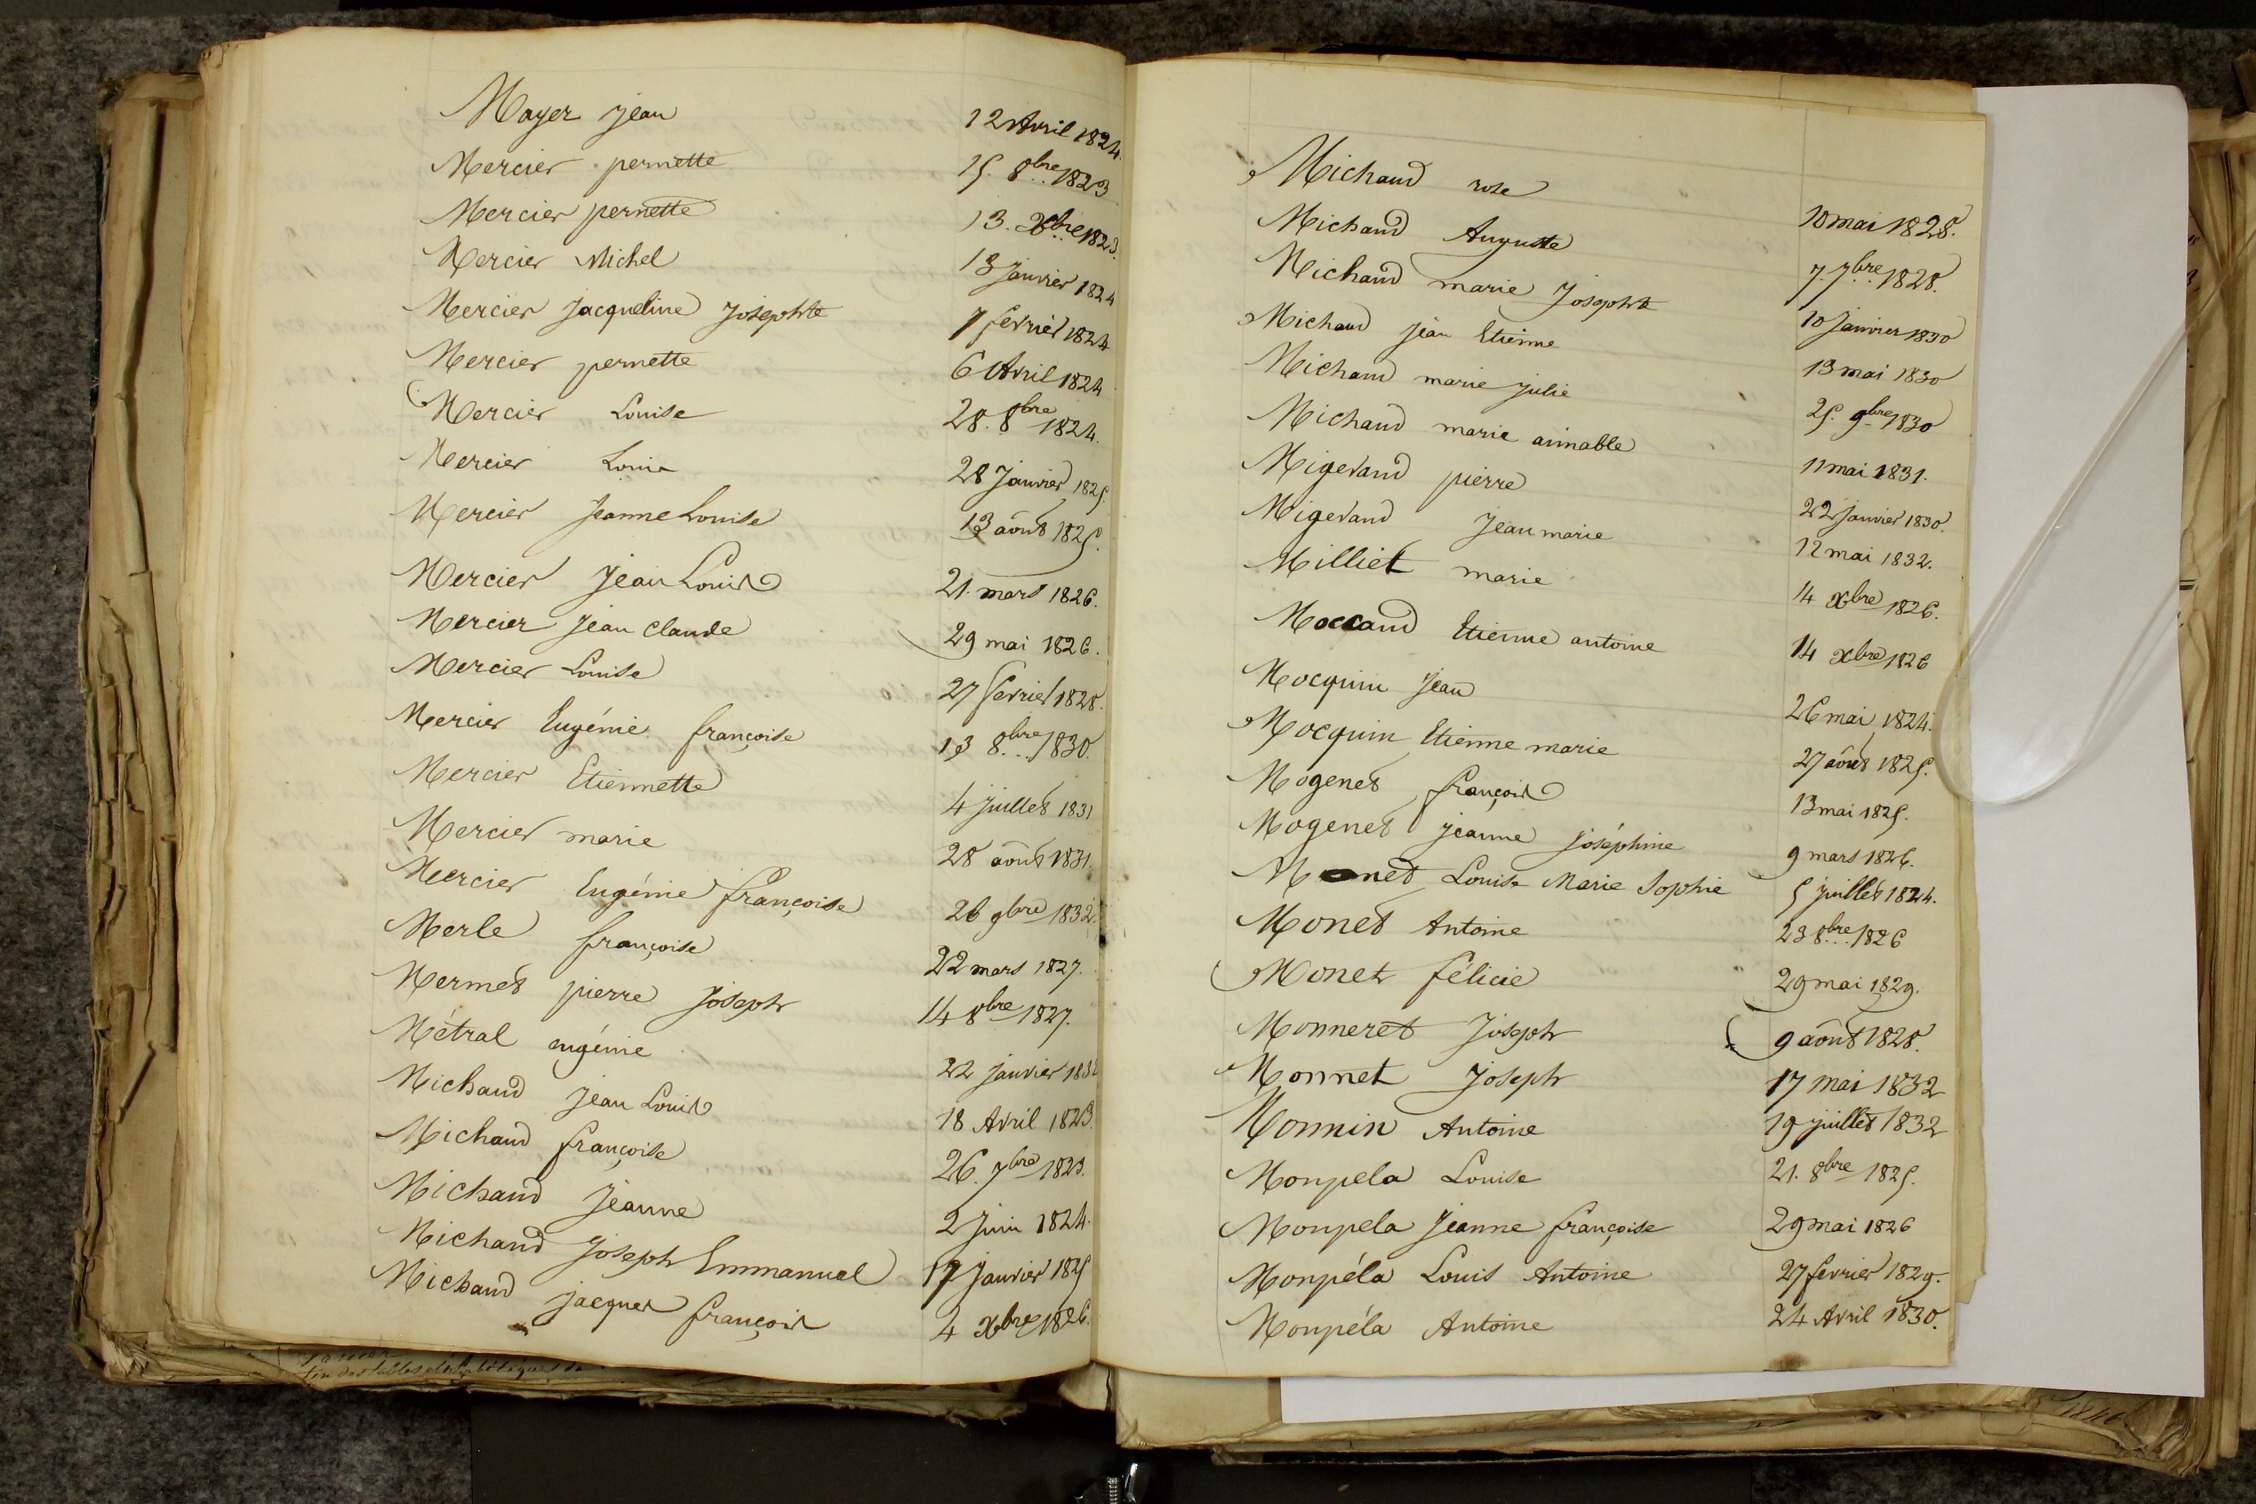 Mayer jean 12 Avril 1824.
Mercier pernette 15. 8bre 1823
Mercier pernette 13. Xbre 1823.
Mercier Michel 13 Janvier 1824
Mercier Jacqueline Josephte 7 fevrier 1824
Mercier pernette 6 Avril 1824
Mercier Louise 28. 8bre 1824.
Mercier Louise 28 Janvier 1825.
Mercier Jeanne Louise 13 août 1825.
Mercier Jean Louis 21. mars 1826.
Mercier Jean Claude 29 mai 1826.
Mercier Louise 27 fevrier 1828.
Mercier Eugénie françoise 13 8bre 1830.
Mercier Etiennette 4 juillet 1831
Mercier marie 28 août 1831.
Mercier Eugénie françoise 26 9bre 1832.
Merle françoise 22 mars 1827.
Mermet pierre Joseph 14 8bre 1827.
Métral eugénie 22 janvier 183
Michaud Jean Louis 18 Avril 1823.
Michaud françoise 26. 7bre 1823.
Michaud Jeanne 2 Juin 1824.
Michaud Joseph Emmanuel 17 Janvier 1825
Michaud jacques françois 4 Xbre 1826.
Michaud rose 10 mai 1828.
Michaud Auguste 7. 7bre 1828.
Michaud marie Josephte 10 Janvier 1830
Michaud jean Etienne 13 mai 1830
Michaud marie julie 25. 9bre 1830
Michaud marie aimable 11 mai 1831.
Migerand pierre 22 janvier 1830.
Migerand Jean marie 12 mai 1832.
Milliet marie 14 Xbre 1826.
Moccand Etienne antoine 14 Xbre 1826
Mocquin Jean 26 mai 1824.
Mocquin Etienne marie 27 août 1825.
Mogenet françois 13 mai 1825.
Mogenet jeanne joséphine 9 mars 1826.
Monet Louise Marie Sophie 5 juillet 1824.
Monet Antoine 23 8bre 1826
Monet félicie 29 mai 1829.
Monneret Joseph 9 août 1828.
Monnet Joseph 17 mai 1832
Monnin Antoine 19 juillet 1832
Monpela Louise 21. 8bre 1825.
Monpela Jeanne françoise 29 mai 1826
Monpéla Louis Antoine 27 fevrier 1829.
Monpéla Antoine 24 Avril 1830.